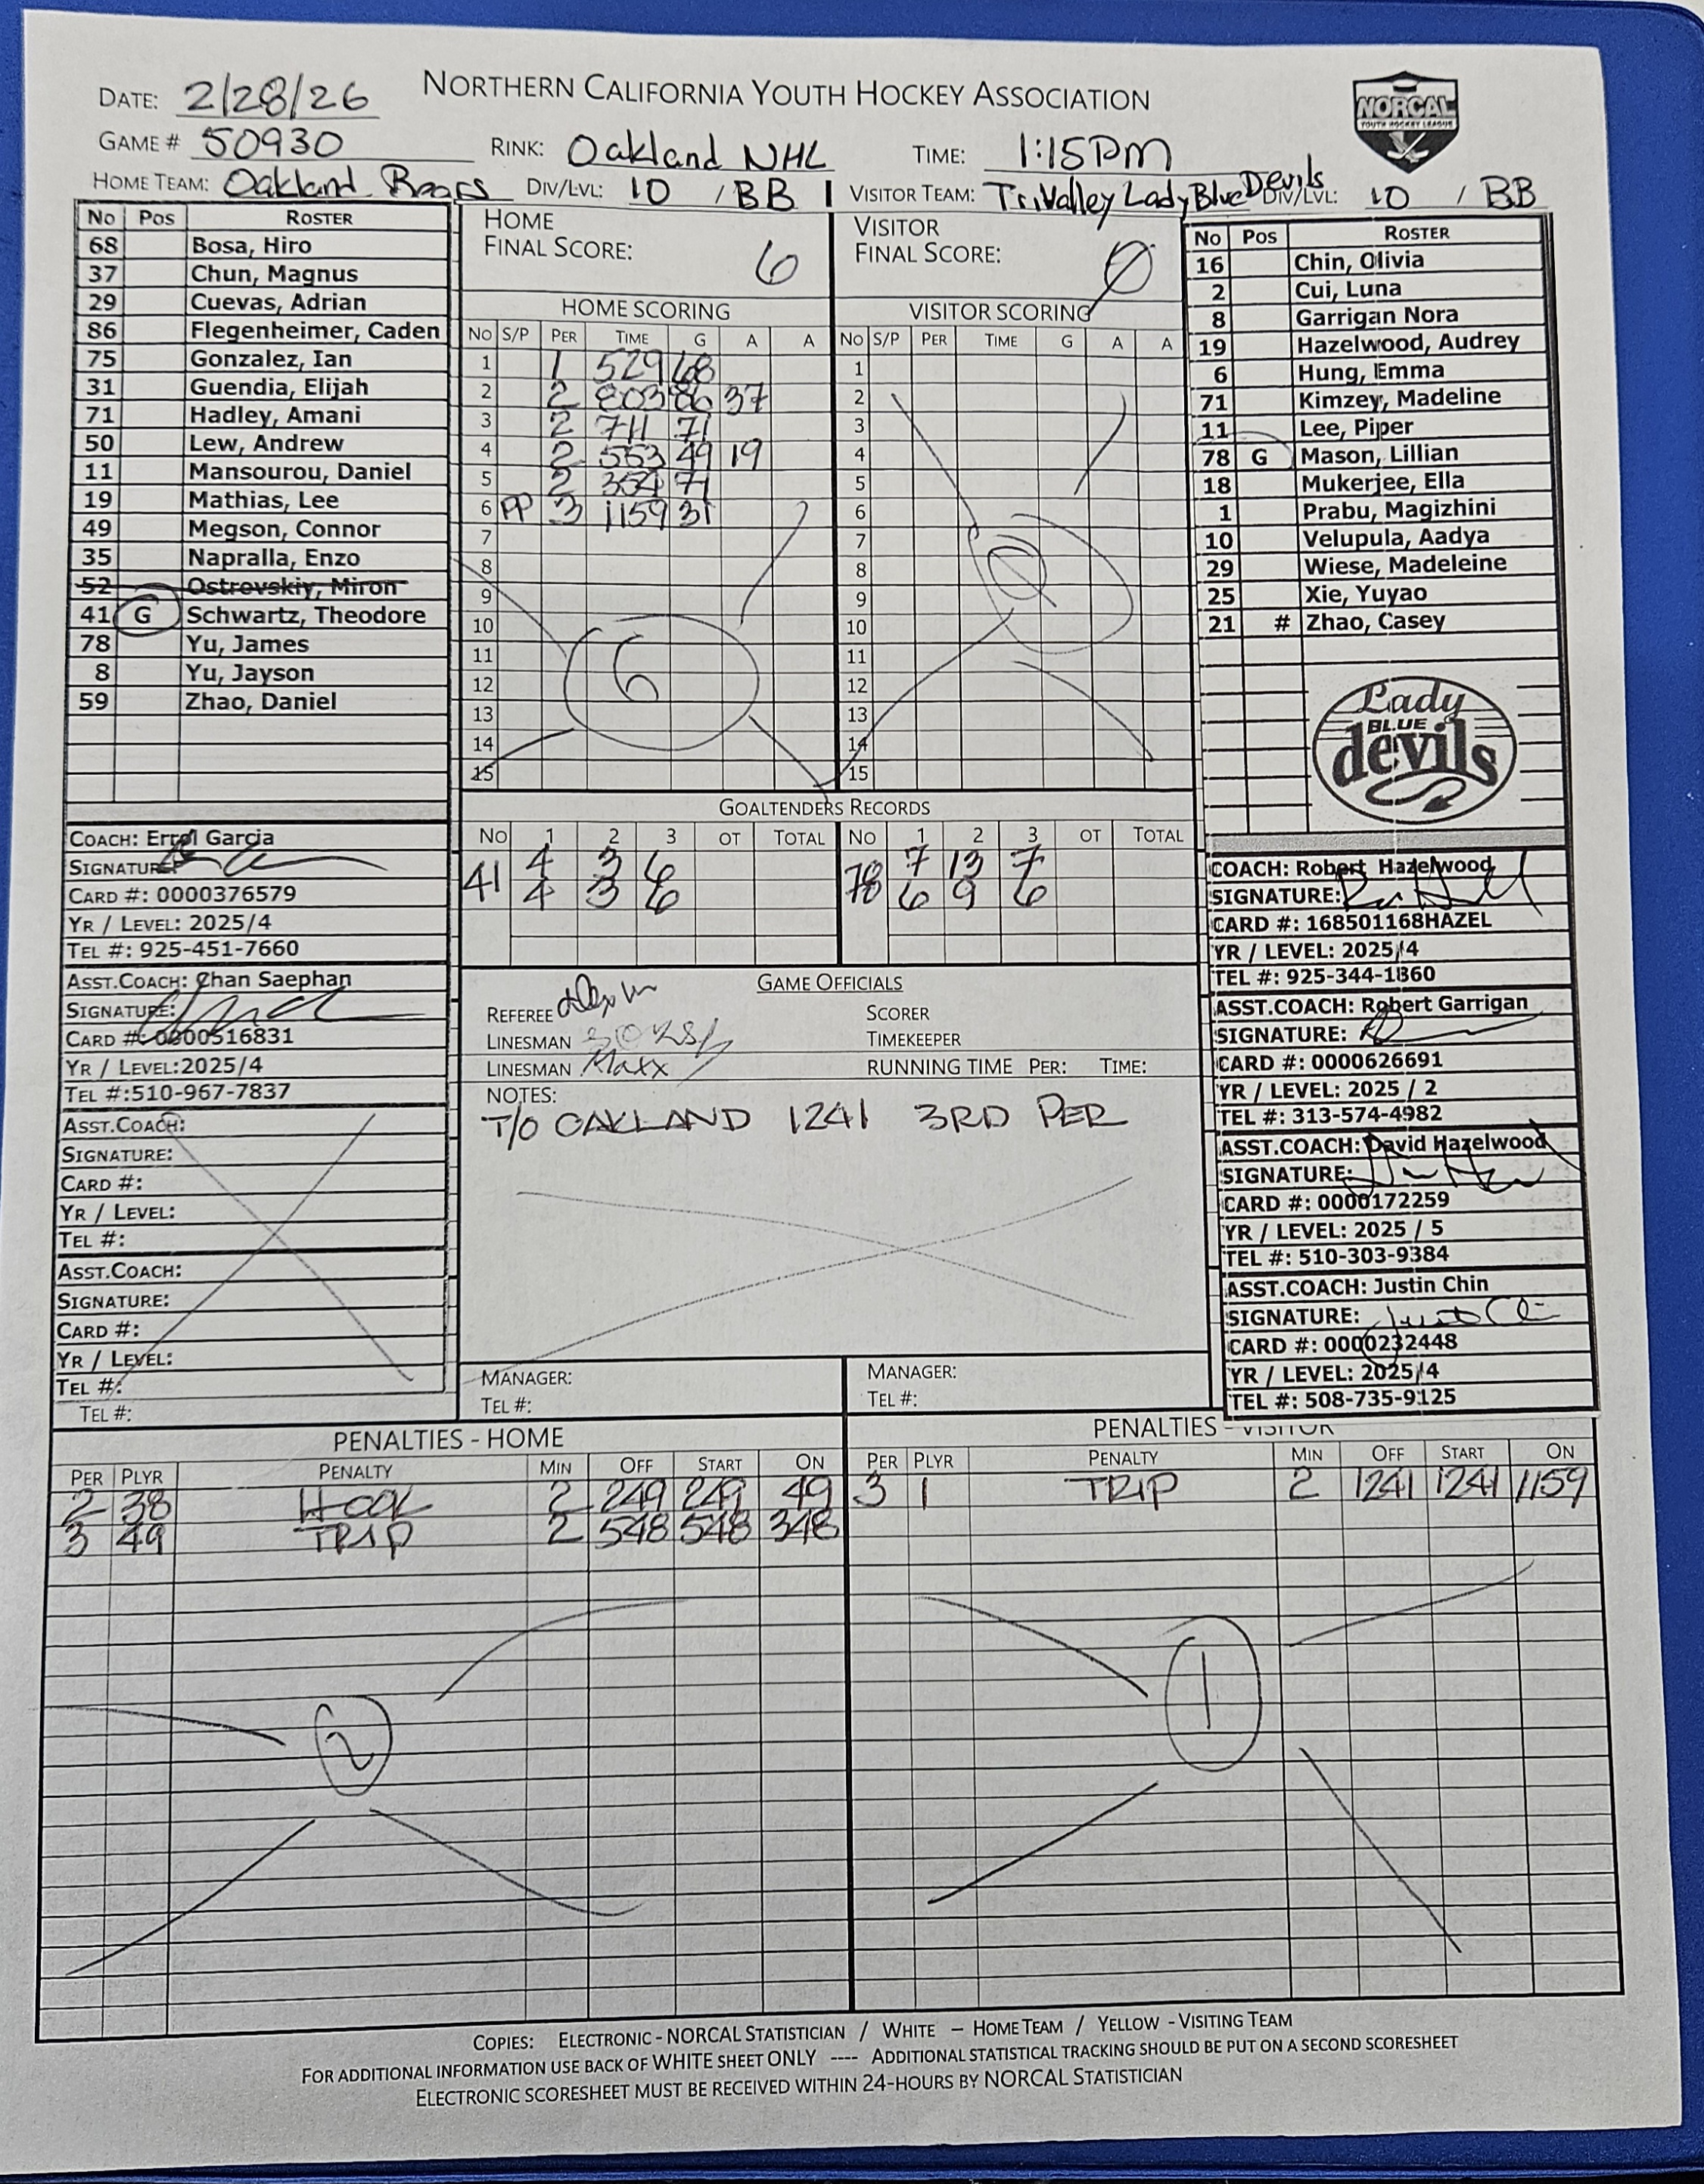 NORTHERN CALIFORNIA YOUTH HOCKEY ASSOCIATION
NORCAL
YOUTH HOCKEY LEAGUE
DATE: 2/28/26
GAME # 50930 RINK: Oakland NHL TIME: 1:15PM
HOME TEAM: Oakland Bears DIV/LVL: 10 / BB 1 VISITOR TEAM: Tri Valley Lady Blue Devils DIV/LVL: 10 / BB
No Pos ROSTER
68 Bosa, Hiro
37 Chun, Magnus
29 Cuevas, Adrian
86 Flegenheimer, Caden
75 Gonzalez, Ian
31 Guendia, Elijah
71 Hadley, Amani
50 Lew, Andrew
11 Mansourou, Daniel
19 Mathias, Lee
49 Megson, Connor
35 Napralla, Enzo
52 Ostrovskiy, Miron
41 G Schwartz, Theodore
78 Yu, James
8 Yu, Jayson
59 Zhao, Daniel
HOME
FINAL SCORE: 6
HOME SCORING
NO S/P PER TIME G A A
1 1 529 68
2 2 803 86 37
3 2 711 71
4 2 553 49 19
5 2 71
6 PP 3 1159 31
7
8
9
10
11
12
13
14
15
6
VISITOR
FINAL SCORE: 0
VISITOR SCORING
NO S/P PER TIME G A A
1
2
3
4
5
6
7
8
9
10
11
12
13
14
15
0
No Pos ROSTER
16 Chin, Olivia
2 Cui, Luna
8 Garrigan Nora
19 Hazelwood, Audrey
6 Hung, Emma
71 Kimzey, Madeline
11 Lee, Piper
78 G Mason, Lillian
18 Mukerjee, Ella
1 Prabu, Magizhini
10 Velupula, Aadya
29 Wiese, Madeleine
25 Xie, Yuyao
21 # Zhao, Casey
Lady
BLUE
devils
GOALTENDERS RECORDS
NO 1 2 3 OT TOTAL NO 1 2 3 OT TOTAL
41 4 3 6 78 7 13 7
4 3 6 6 9 6
COACH: Errol Garcia
SIGNATURE:
CARD #: 0000376579
YR / LEVEL: 2025/4
TEL #: 925-451-7660
ASST.COACH: Chan Saephan
SIGNATURE:
CARD #: 0000516831
YR / LEVEL:2025/4
TEL #:510-967-7837
ASST.COACH:
SIGNATURE:
CARD #:
YR / LEVEL:
TEL #:
ASST.COACH:
SIGNATURE:
CARD #:
YR / LEVEL:
TEL #:
TEL #:
GAME OFFICIALS
REFEREE SCORER
LINESMAN TIMEKEEPER
LINESMAN Maxx RUNNING TIME PER: TIME:
NOTES:
T/O OAKLAND 1241 3RD PER
MANAGER:
TEL #:
MANAGER:
TEL #:
COACH: Robert Hazelwood
SIGNATURE:
CARD #: 168501168HAZEL
YR / LEVEL: 2025/4
TEL #: 925-344-1860
ASST.COACH: Robert Garrigan
SIGNATURE:
CARD #: 0000626691
YR / LEVEL: 2025 / 2
TEL #: 313-574-4982
ASST.COACH: David Hazelwood
SIGNATURE:
CARD #: 0000172259
YR / LEVEL: 2025 / 5
TEL #: 510-303-9384
ASST.COACH: Justin Chin
SIGNATURE:
CARD #: 0000232448
YR / LEVEL: 2025/4
TEL #: 508-735-9125
PENALTIES - HOME
PER PLYR PENALTY MIN OFF START ON
2 38 HOOK 2 249 249 49
3 49 TRIP 2 548 548 348
2
PENALTIES - VISITOR
PER PLYR PENALTY MIN OFF START ON
3 1 TRIP 2 1241 1241 1159
1
COPIES: ELECTRONIC - NORCAL STATISTICIAN / WHITE – HOME TEAM / YELLOW - VISITING TEAM
FOR ADDITIONAL INFORMATION USE BACK OF WHITE SHEET ONLY ---- ADDITIONAL STATISTICAL TRACKING SHOULD BE PUT ON A SECOND SCORESHEET
ELECTRONIC SCORESHEET MUST BE RECEIVED WITHIN 24-HOURS BY NORCAL STATISTICIAN